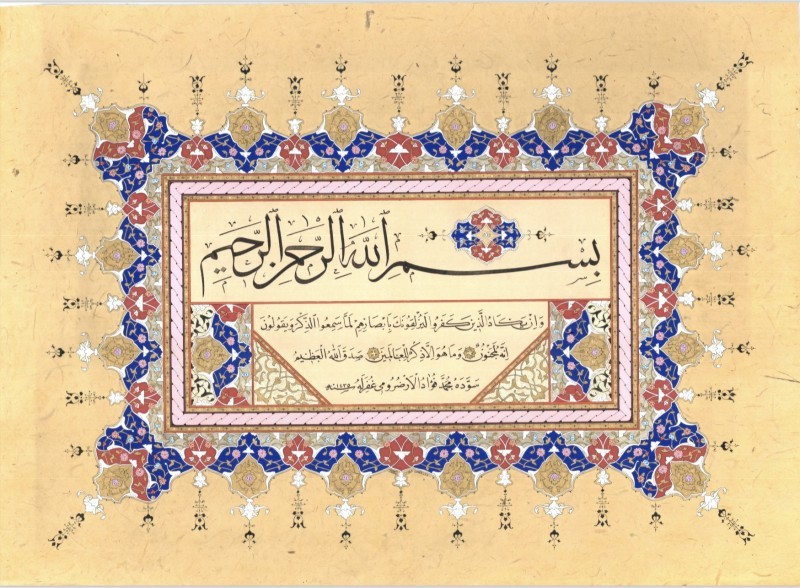 بِسْمِ ٱللّٰهِ ٱلرَّحْمٰنِ ٱلرَّحِيمِ
وَاِنْ يَكَادُ الَّذِينَ كَفَرُوا لَيُزْلِقُونَكَ بِاَبْصَارِهِمْ لَمَّا سَمِعُوا الذِّكْرَ وَيَقُولُونَ
اِنَّهُ لَمَجْنُونٌ وَمَا هُوَ اِلَّا ذِكْرٌ لِلْعَالَمِينَ صَدَقَ اللّٰهُ الْعَظِيمُ
سَوَّدَهُ مُحَمَّد فُؤَاد الْاَرْضَرُومِي غُفِرَ لَهُ